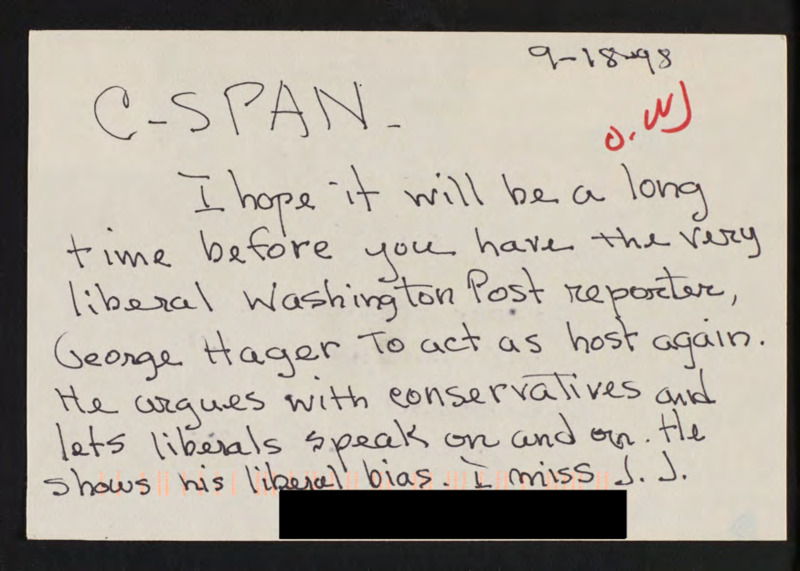 9-18-98
C-SPAN-
O.W.J
I hope it will be a long
time before you have the very
liberal Washington Post reporter,
George Hager To act as host again.
He argues with conservatives and
lets liberals speak on and on. He
shows his liberal bias. I miss J. J.